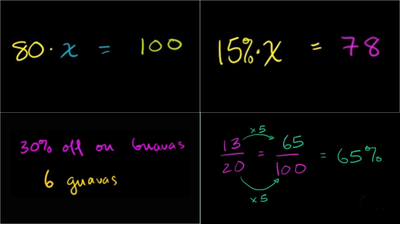 80 · x = 100
15% · x = 78
30% off on Guavas
6 guavas
13/20 = 65/100 = 65%
x5
x5